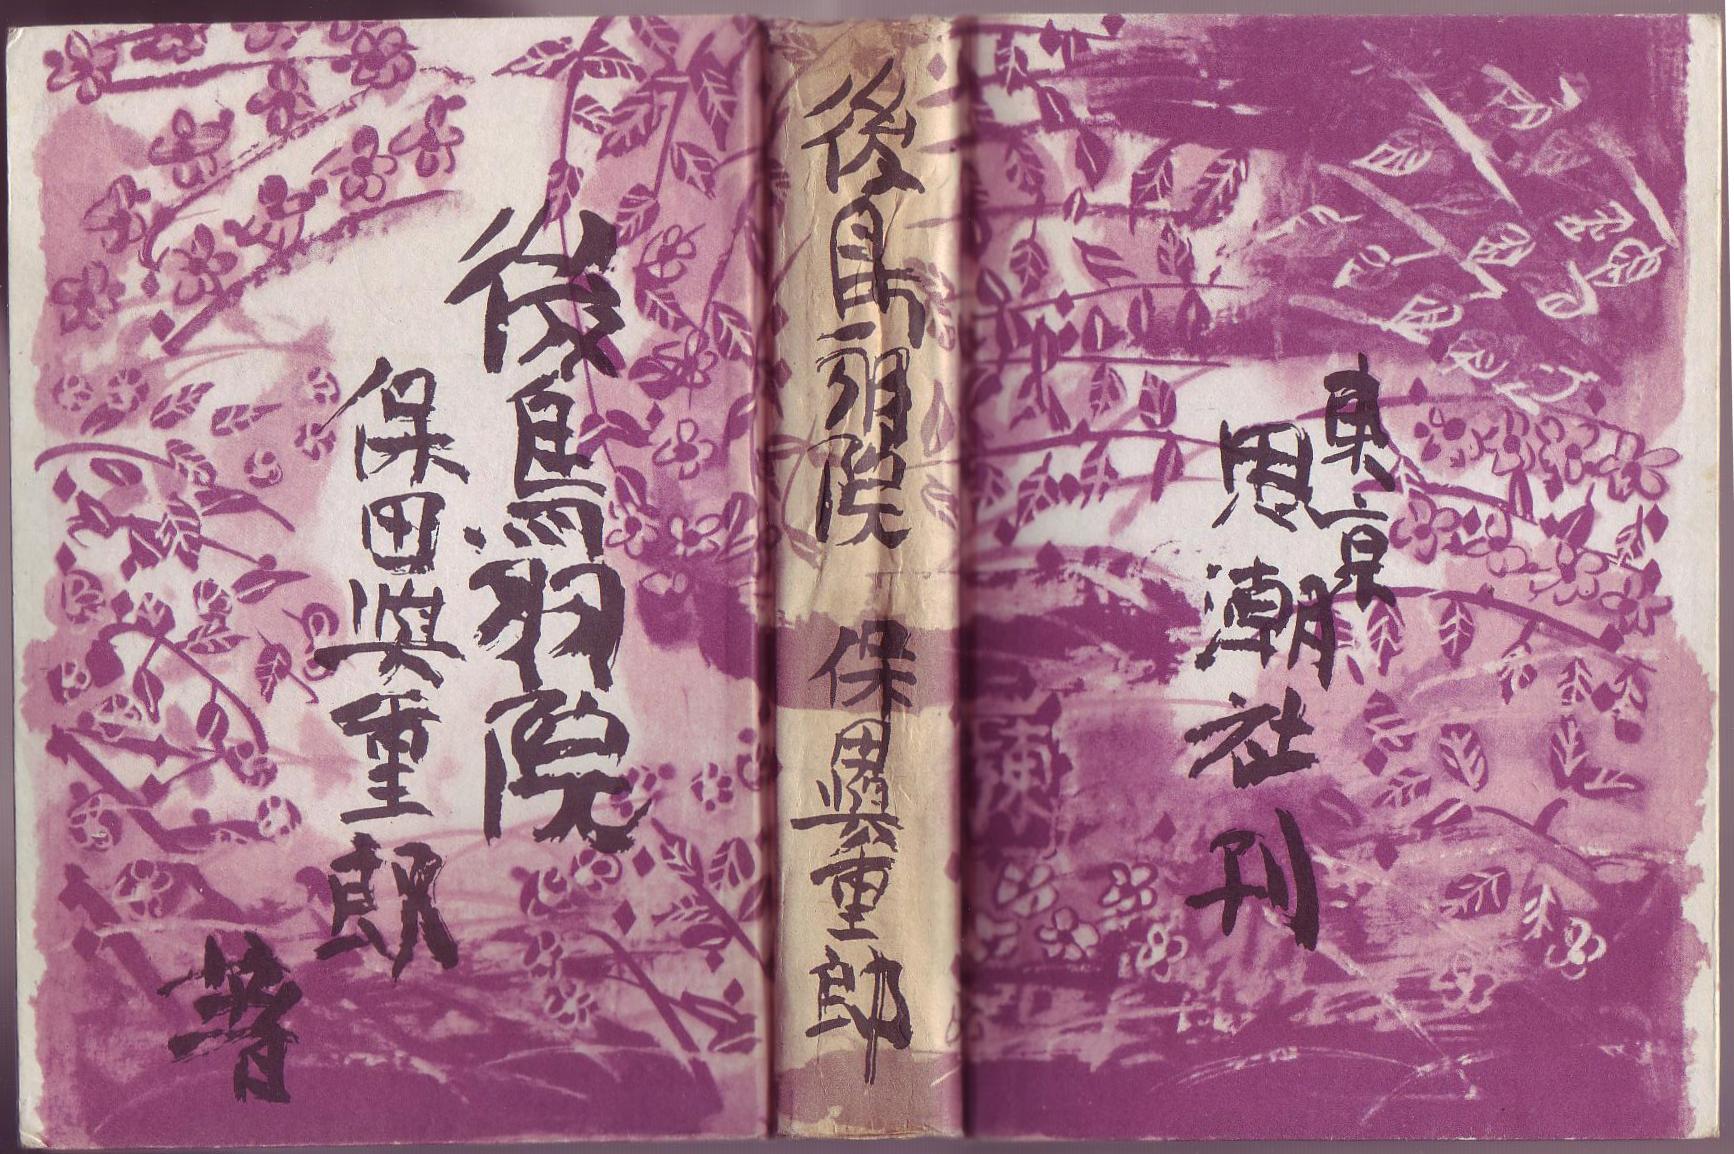 後鳥羽院
保田與重郎
著
後鳥羽院 保田與重郎
東京
思潮社
刊